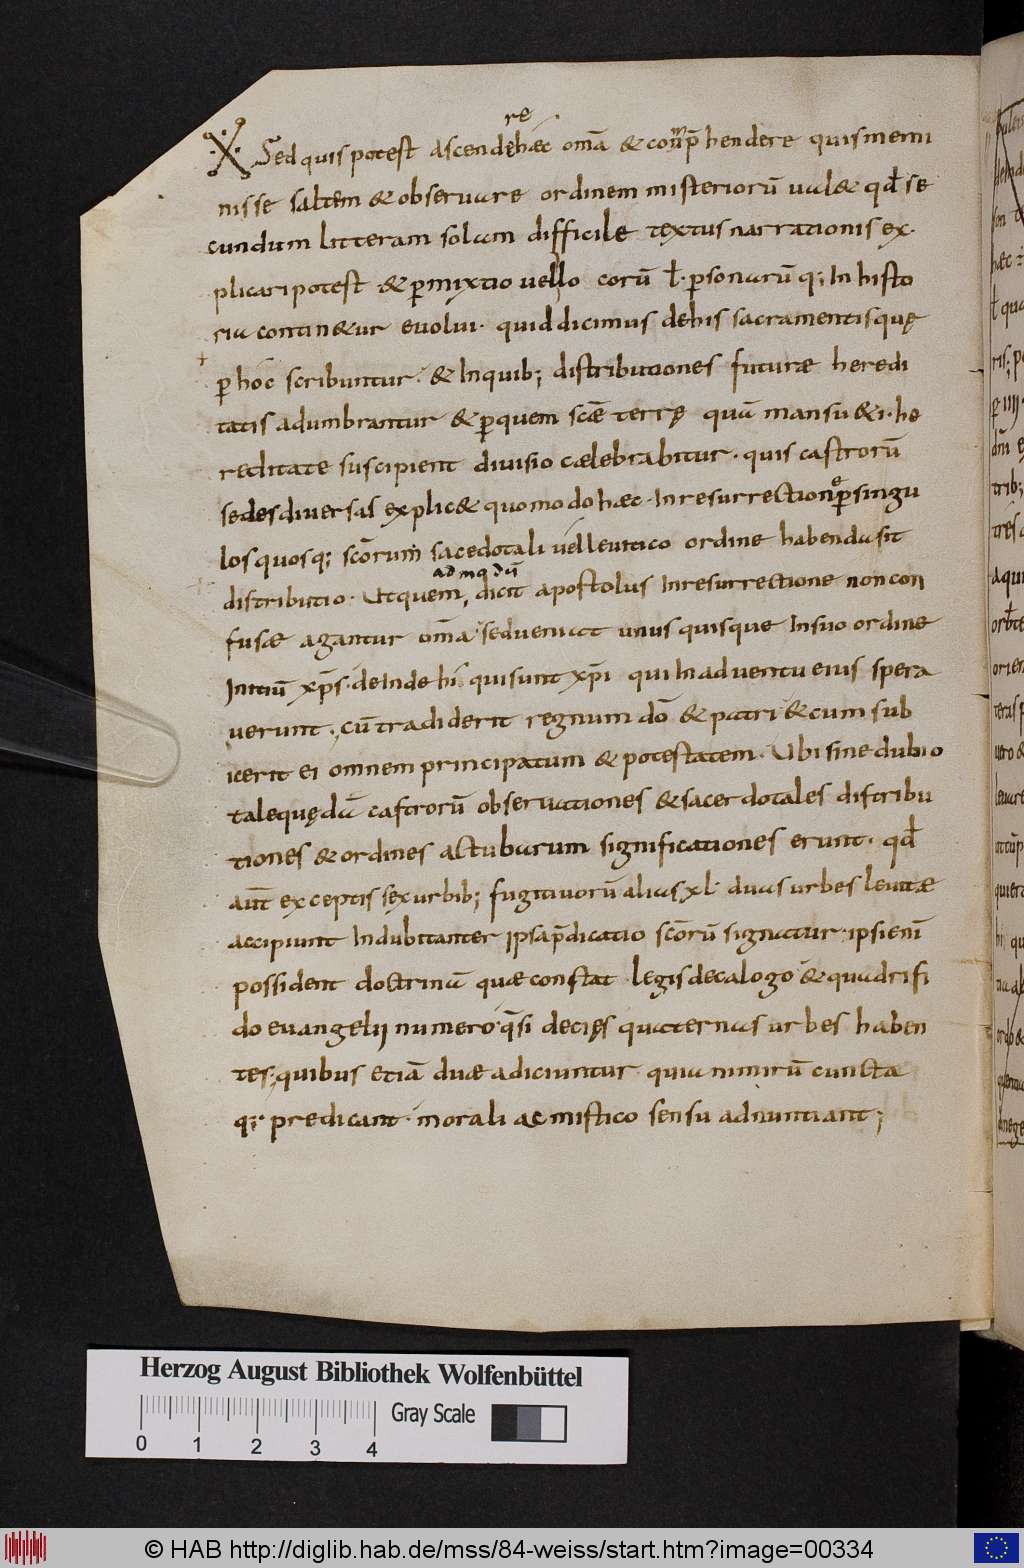 re
Sed quis potest ascendę hæc om̄a & com̄p̄hendere quis memi
nisse saltem & obseruare ordinem misteriorū ual& qđ se
cundum litteram solam difficile textus narrationis ex
plicari potest & ꝑmixtio uel lo corū ł personarū q; In histo
ria contin&ur euolui. quid dicimus de his sacramentis quę
ꝑ hoc scribuntur. & In quib; distributiones futuræ heredi
tatis adumbrantur & ꝑ quem scǣ terrę quā mansu&i. he
reditate suscipient diuisio cælebrabitur. quis castrorū
sedes diuersas explic& quomodo hæc In resurrectione ꝑ singu
los quosq; scōrum sacedotali uel leuitico ordine habenda sit
ad mod dū
distributio. Ut quem, dicit apostolus In resurrectione non con
fusæ agantur om̄a sed ueniat unus quisque In suo ordine
Initiū xp̄s. deInde hi qui sunt xp̄i qui In aduentu eius spera
uerunt. cū tradiderit regnum dō & patri & cum sub
iecerit ei omnem principatum & potestatem. Ubi sine dubio
tale quędā castrorū obseruationes & sacerdotales distribu
tiones & ordines ac tubarum significationes erunt. qđ
aūt exceptis sex urbib; fugitiuorū alias xl duas urbes leuitæ
accipiunt Indubitanter ipsa p̄dicatio scōrū signatur. ipsi enī
possident doctrinā quæ constat legis decalogo & quadrifi
do euangelij numero q̄si decięs quaternas urbes haben
tes. quibus etiā duæ adiciuntur quia nimirū cuncta
q; predicant morali ac mistico sensu adnuntiant;
Herzog August Bibliothek Wolfenbüttel
0 1 2 3 4 Gray Scale
© HAB http://diglib.hab.de/mss/84-weiss/start.htm?image=00334